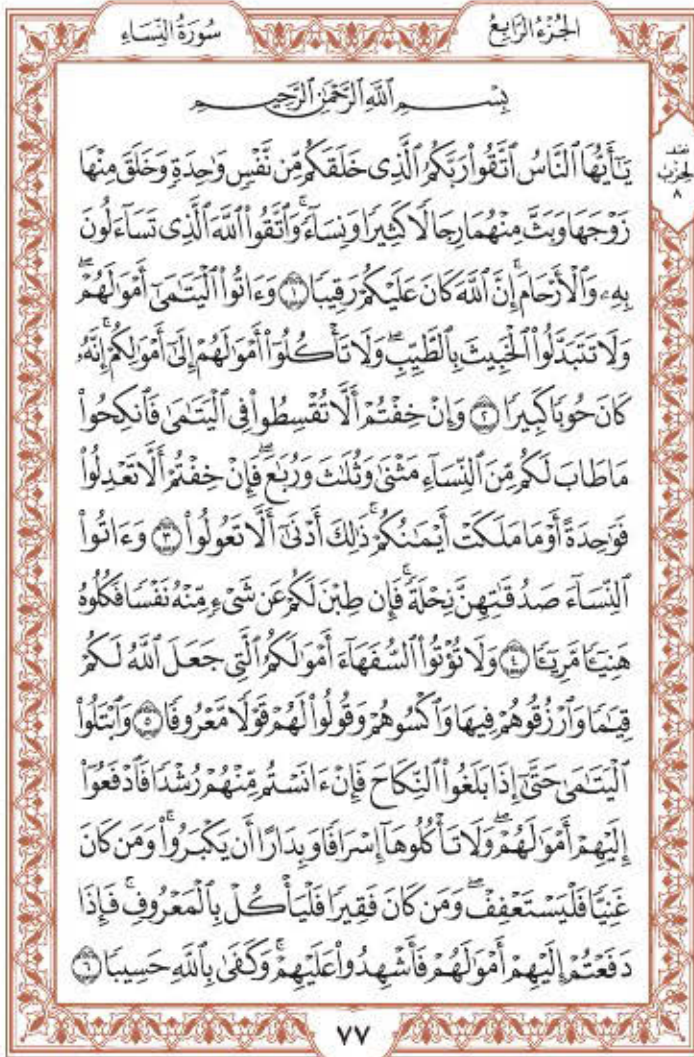 سُورَةُ النِّسَاءِ
الجُزْءُ الرَّابِعُ
بِسْمِ ٱللَّهِ ٱلرَّحْمَٰنِ ٱلرَّحِيمِ
يَٰٓأَيُّهَا ٱلنَّاسُ ٱتَّقُوا۟ رَبَّكُمُ ٱلَّذِى خَلَقَكُم مِّن نَّفْسٍ وَٰحِدَةٍ وَخَلَقَ مِنْهَا
زَوْجَهَا وَبَثَّ مِنْهُمَا رِجَالًا كَثِيرًا وَنِسَآءً ۚ وَٱتَّقُوا۟ ٱللَّهَ ٱلَّذِى تَسَآءَلُونَ
بِهِۦ وَٱلْأَرْحَامَ ۚ إِنَّ ٱللَّهَ كَانَ عَلَيْكُمْ رَقِيبًا ١ وَءَاتُوا۟ ٱلْيَتَٰمَىٰٓ أَمْوَٰلَهُمْ ۖ
وَلَا تَتَبَدَّلُوا۟ ٱلْخَبِيثَ بِٱلطَّيِّبِ ۖ وَلَا تَأْكُلُوٓا۟ أَمْوَٰلَهُمْ إِلَىٰٓ أَمْوَٰلِكُمْ ۚ إِنَّهُۥ
كَانَ حُوبًا كَبِيرًا ٢ وَإِنْ خِفْتُمْ أَلَّا تُقْسِطُوا۟ فِى ٱلْيَتَٰمَىٰ فَٱنكِحُوا۟
مَا طَابَ لَكُم مِّنَ ٱلنِّسَآءِ مَثْنَىٰ وَثُلَٰثَ وَرُبَٰعَ ۖ فَإِنْ خِفْتُمْ أَلَّا تَعْدِلُوا۟
فَوَٰحِدَةً أَوْ مَا مَلَكَتْ أَيْمَٰنُكُمْ ۚ ذَٰلِكَ أَدْنَىٰٓ أَلَّا تَعُولُوا۟ ٣ وَءَاتُوا۟
ٱلنِّسَآءَ صَدُقَٰتِهِنَّ نِحْلَةً ۚ فَإِن طِبْنَ لَكُمْ عَن شَىْءٍ مِّنْهُ نَفْسًا فَكُلُوهُ
هَنِيٓـًٔا مَّرِيٓـًٔا ٤ وَلَا تُؤْتُوا۟ ٱلسُّفَهَآءَ أَمْوَٰلَكُمُ ٱلَّتِى جَعَلَ ٱللَّهُ لَكُمْ
قِيَٰمًا وَٱرْزُقُوهُمْ فِيهَا وَٱكْسُوهُمْ وَقُولُوا۟ لَهُمْ قَوْلًا مَّعْرُوفًا ٥ وَٱبْتَلُوا۟
ٱلْيَتَٰمَىٰ حَتَّىٰٓ إِذَا بَلَغُوا۟ ٱلنِّكَاحَ فَإِنْ ءَانَسْتُم مِّنْهُمْ رُشْدًا فَٱدْفَعُوٓا۟
إِلَيْهِمْ أَمْوَٰلَهُمْ ۖ وَلَا تَأْكُلُوهَآ إِسْرَافًا وَبِدَارًا أَن يَكْبَرُوا۟ ۚ وَمَن كَانَ
غَنِيًّا فَلْيَسْتَعْفِفْ ۖ وَمَن كَانَ فَقِيرًا فَلْيَأْكُلْ بِٱلْمَعْرُوفِ ۚ فَإِذَا
دَفَعْتُمْ إِلَيْهِمْ أَمْوَٰلَهُمْ فَأَشْهِدُوا۟ عَلَيْهِمْ ۚ وَكَفَىٰ بِٱللَّهِ حَسِيبًا ٦
نصف
الحزب
٨
٧٧